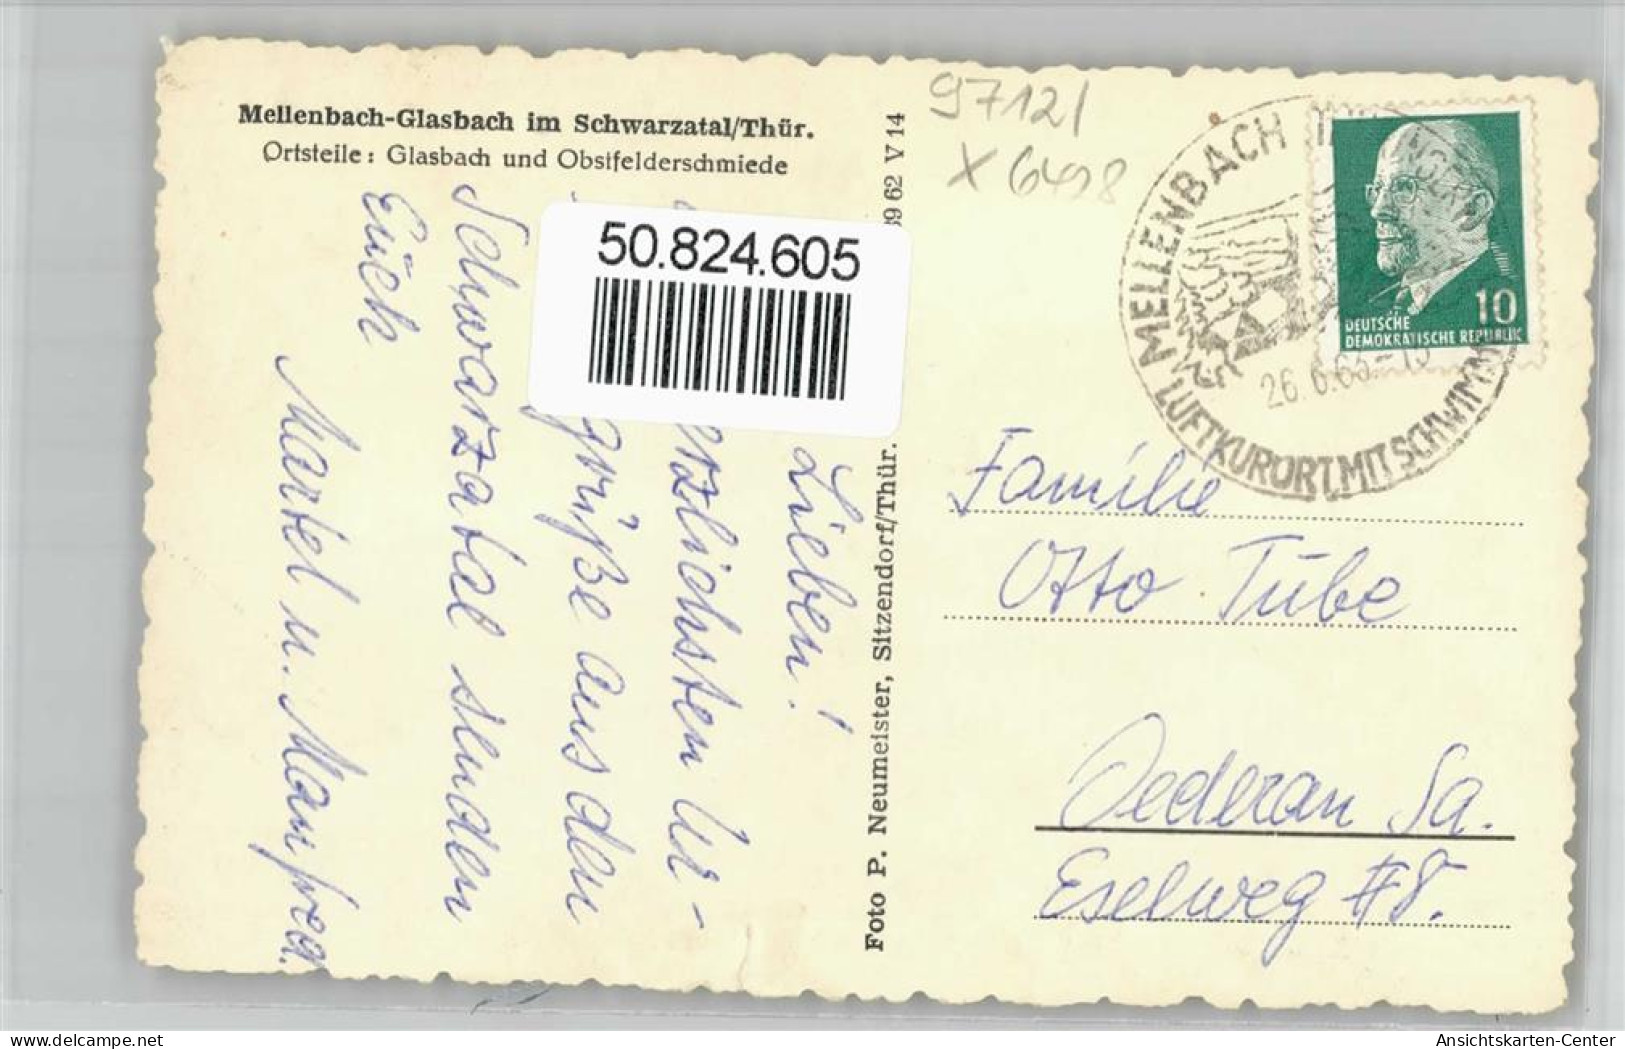 Mellenbach-Glasbach im Schwarzatal/Thür.
Ortsteile: Glasbach und Obstfelderschmiede
97121
X 6498
50.824.605
Lieben!
grüße aus dem
Schwarzatal senden
Euch
Martel u. Manfred.
Foto P. Neumeister, Sitzendorf/Thür.
39 62 V 14
MELLENBACH
LUFTKURORT MIT SCHWIMM
26.6.65-15
10
DEUTSCHE
DEMOKRATISCHE REPUBLIK
Familie
Otto Tübe
Oederan Sa.
Eselweg #8.
delcampe.net
Ansichtskarten-Center